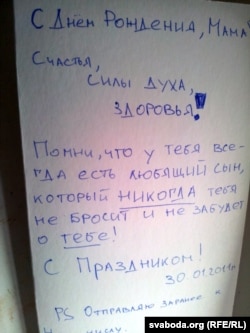 С Днём Рождения, Мама
Счастья,
силы духа,
здоровья!
Помни, что у тебя все-
гда есть любящий сын,
который никогда тебя
не бросит и не забудет
о тебе!
С Праздником!
30.01.2011г
PS Отправляю заранее к
svaboda.org (RFE/RL)